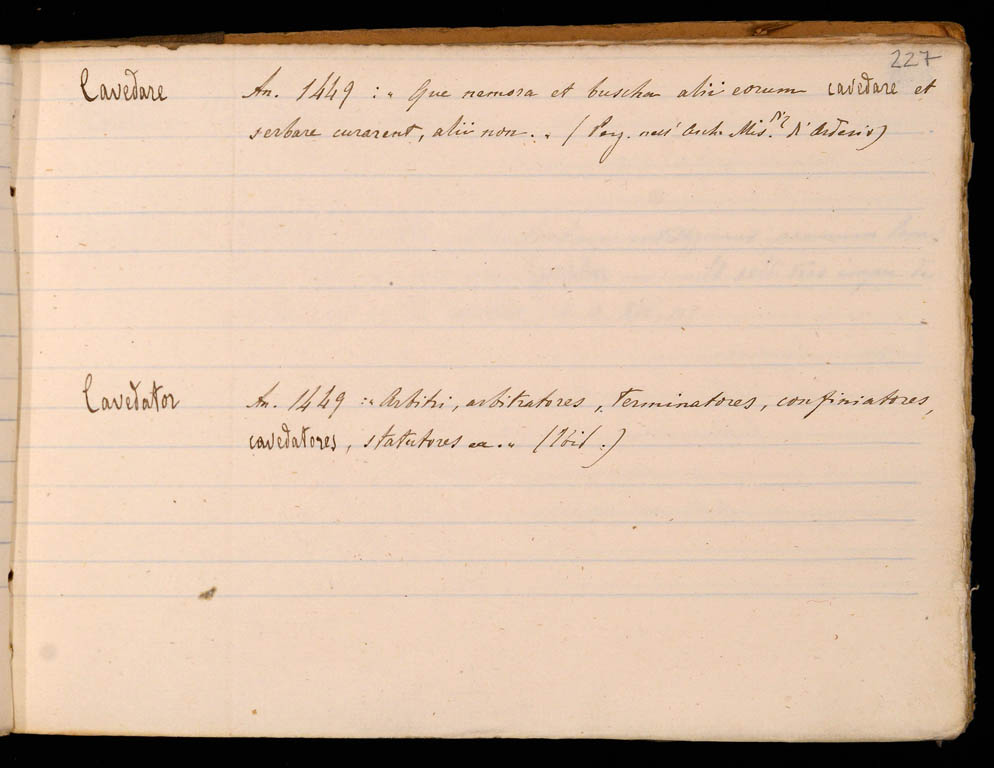 227
Cavedare An. 1449 : „ Que nemora et buscha alii eorum cavedare et
serbare curarent, alii non. „ (Perg. nell' Arch. Mis. d' Ardesio)
Cavedator An. 1449 :„ Arbitri, arbitratores, terminatores, confiniatores,
cavedatores, statutores „ (Ibid.)